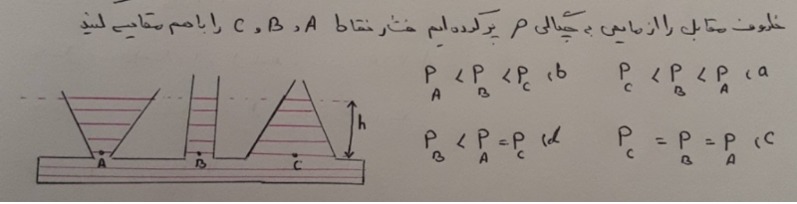 ظروف مقابل را از مایعی به چگالی ρ پر کرده ایم فشار نقاط A و B و C را با هم مقایسه کنید
a) P_C < P_B < P_A  b) P_A < P_B < P_C
c) P_C = P_B = P_A  d) P_B < P_A = P_C
h
A B C